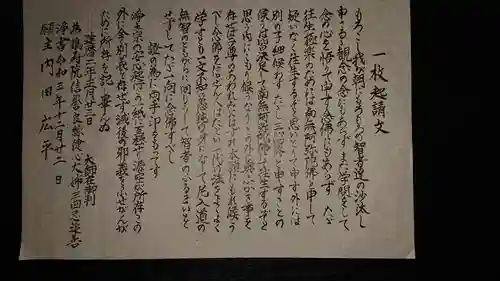 一枚起請文
もろこし我が朝にもろもろの智者達の沙汰し
申さるる観念の念にもあらず また学問をして
念の心を悟りて申す念佛にもあらず たゞ
往生極楽のためには南無阿弥陀佛と申して
疑いなく往生するぞと思いとりて申す外には
別の子細候わず たゞし三心四修と申すことの
候うは皆決定して南無阿弥陀佛にて往生するぞと
思う内にこもり候うなり この外に奥ふかき事を
存ぜば二尊のあわれみにはずれ本願にもれ候う
べし 念佛を信ぜん人はたとい一代の法をよくよく
学すとも一文不知の愚鈍の身になして尼入道の
無智のともがらに同うして智者のふるまいを
せずしてたゞ一向に念佛すべし
證の為に両手印をもってす
浄土宗の安心起行この一紙に至極せり 源空が所存この
外に全く別義を存ぜず滅後の邪義をふせがんが
ために所存を記し畢んぬ
建暦二年正月廿三日 大師在御判
浄書令和三年十二月廿二日
願主内田広平